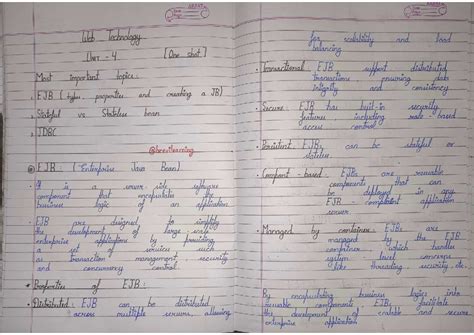 Web Technology
Unit - 4 [One shot]
Most important topics:
EJB (types, properties and creating a JB)
Stateful vs Stateless bean
JDBC
EJB (Enterprise Java Bean)
It is a server-side software
component that encapsulates the
business logic of an application.
EJB are designed to simplify
the development of large scale
enterprise applications by providing
a set of services such
as transaction management, security
and concurrency control.
Properties of EJB:
Distributed: EJB can be distributed
across multiple servers, allowing
for scalability and load
balancing
Transactional: EJB support distributed
transactions, data
integrity and consistency
Secure: EJB has built-in security
features including role-based
access control.
Persistent: EJBs can be stateful or
stateless
Component-based: EJBs are reusable
components that can
be deployed in any
EJB-compliant application
Managed by container: EJBs are
managed by the EJB
container, which handles
system level concerns
like threading, security, etc.
By encapsulating business logic into
reusable components EJBs facilitate
the development of scalable and secure
enterprise application